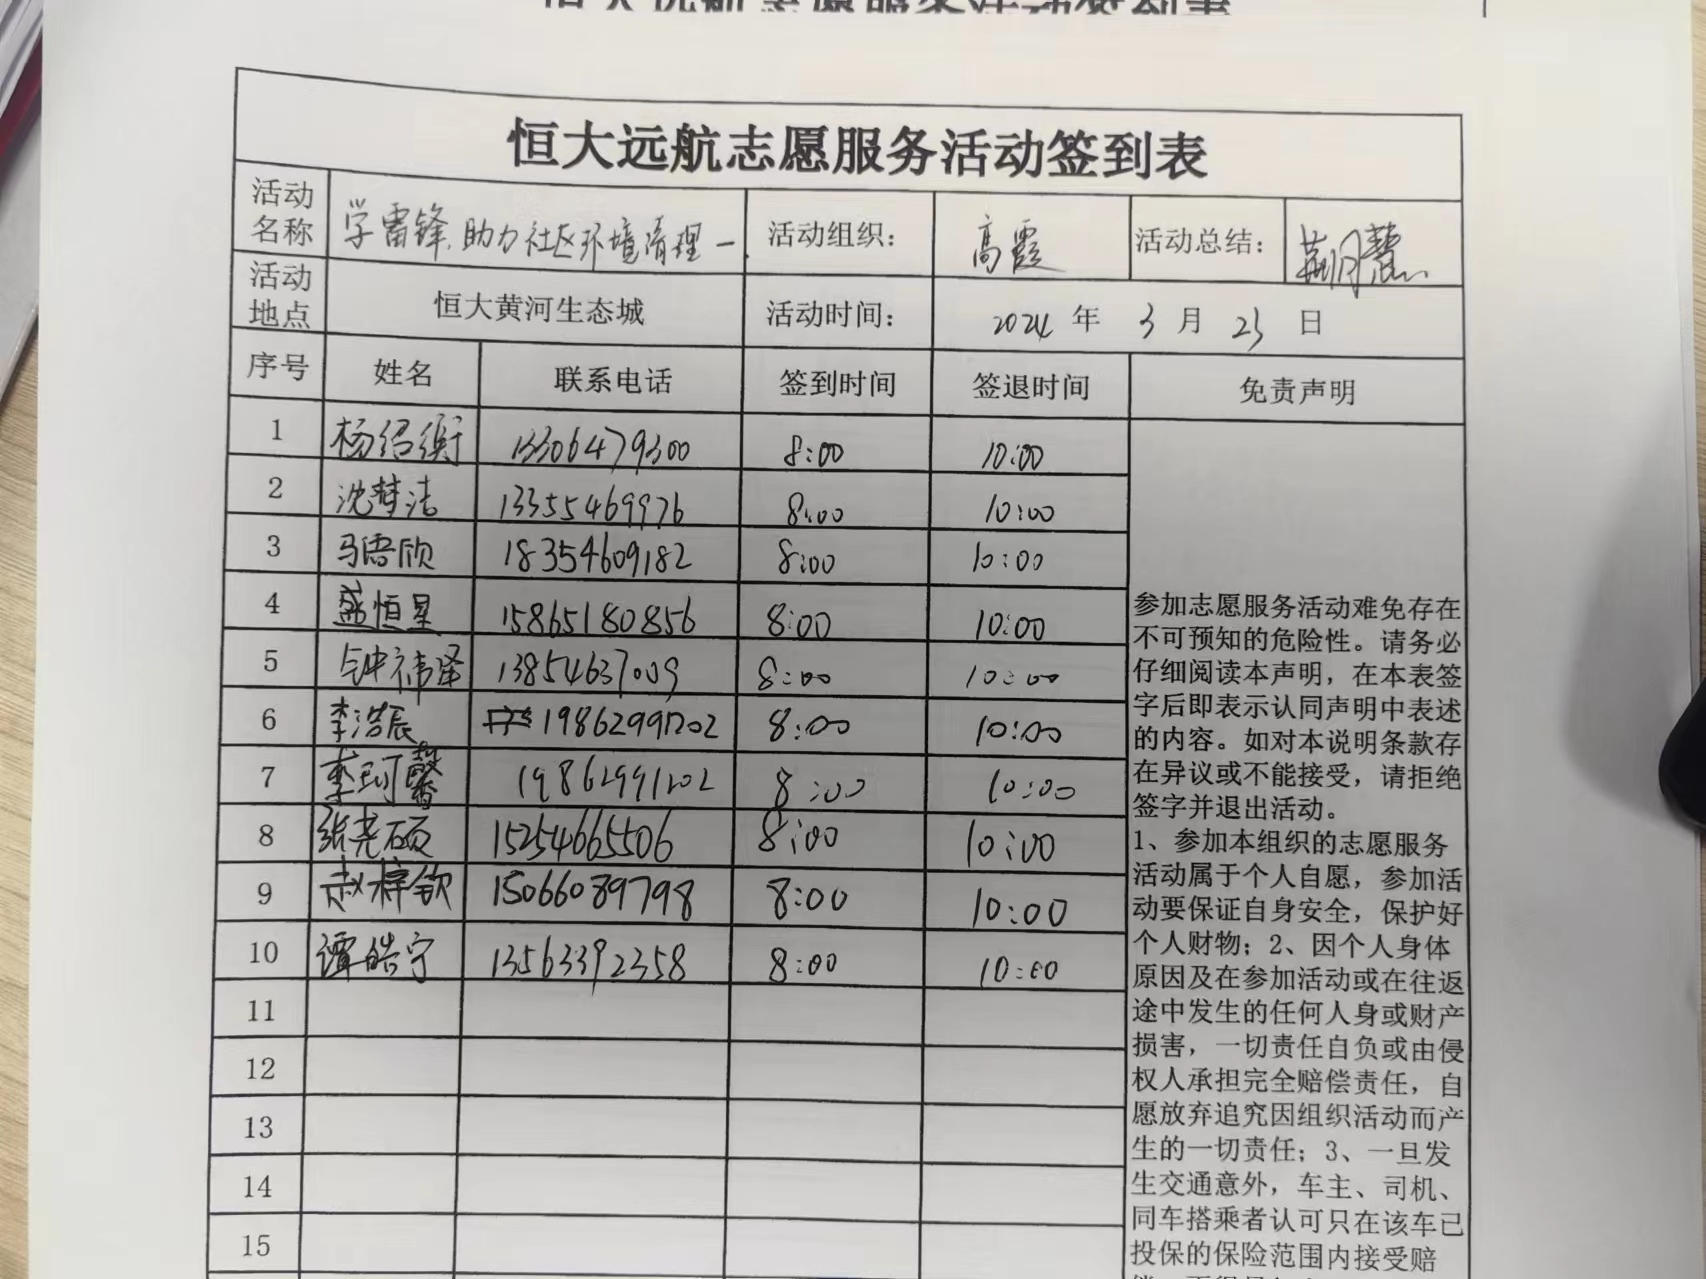 恒大远航志愿服务活动签到表
活动名称 学雷锋、助力社区环境清理一 活动组织： 高霞 活动总结：
活动地点 恒大黄河生态城 活动时间： 2024 年 3 月 23 日
序号 姓名 联系电话 签到时间 签退时间 免责声明
1 杨绍衡 13306479300 8:00 10:00
2 沈梦洁 13355469976 8:00 10:00
3 马语欣 18354609182 8:00 10:00
4 盛恒星 15865180856 8:00 10:00
5 钟祎泽 13854637009 8:00 10:00
6 李浩辰 19862991202 8:00 10:00
7 李珂馨 19862991202 8:00 10:00
8 张尧硕 15254665506 8:00 10:00
9 赵梓钦 15066089798 8:00 10:00
10 谭皓宁 13563392358 8:00 10:00
11
12
13
14
15
参加志愿服务活动难免存在
不可预知的危险性。请务必
仔细阅读本声明，在本表签
字后即表示认同声明中表述
的内容。如对本说明条款存
在异议或不能接受，请拒绝
签字并退出活动。
1、参加本组织的志愿服务
活动属于个人自愿，参加活
动要保证自身安全，保护好
个人财物；2、因个人身体
原因及在参加活动或在往返
途中发生的任何人身或财产
损害，一切责任自负或由侵
权人承担完全赔偿责任，自
愿放弃追究因组织活动而产
生的一切责任；3、一旦发
生交通意外，车主、司机、
同车搭乘者认可只在该车已
投保的保险范围内接受赔